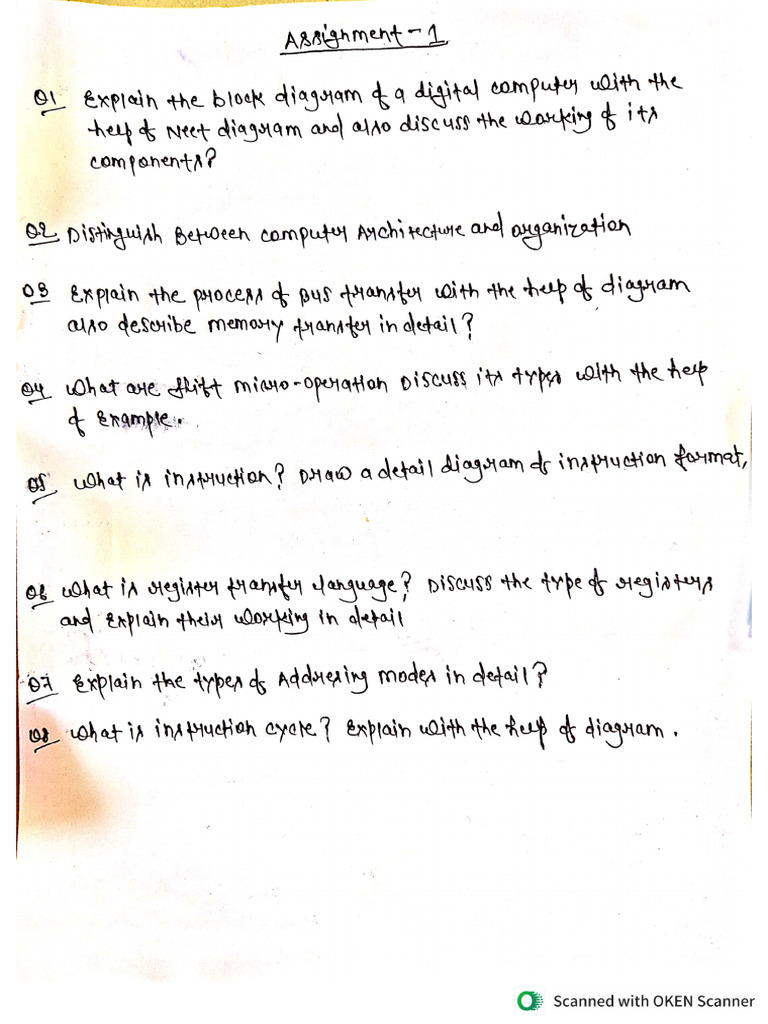 Assignment - 1
Q1 Explain the block diagram of a digital computer with the
help of Neet diagram and also discuss the working of its
components?
Q2 Distinguish Between computer Architecture and organization
Q3 Explain the process of bus transfer with the help of diagram
also describe memory transfer in detail?
Q4 What are shift micro-operation Discuss its types with the help
of Example.
Q5 What is instruction? Draw a detail diagram of instruction format,
Q6 What is register transfer language? Discuss the type of registers
and Explain their working in detail
Q7 Explain the types of Addresing modes in detail?
Q8 What is instruction cycle? Explain with the help of diagram.
Scanned with OKEN Scanner